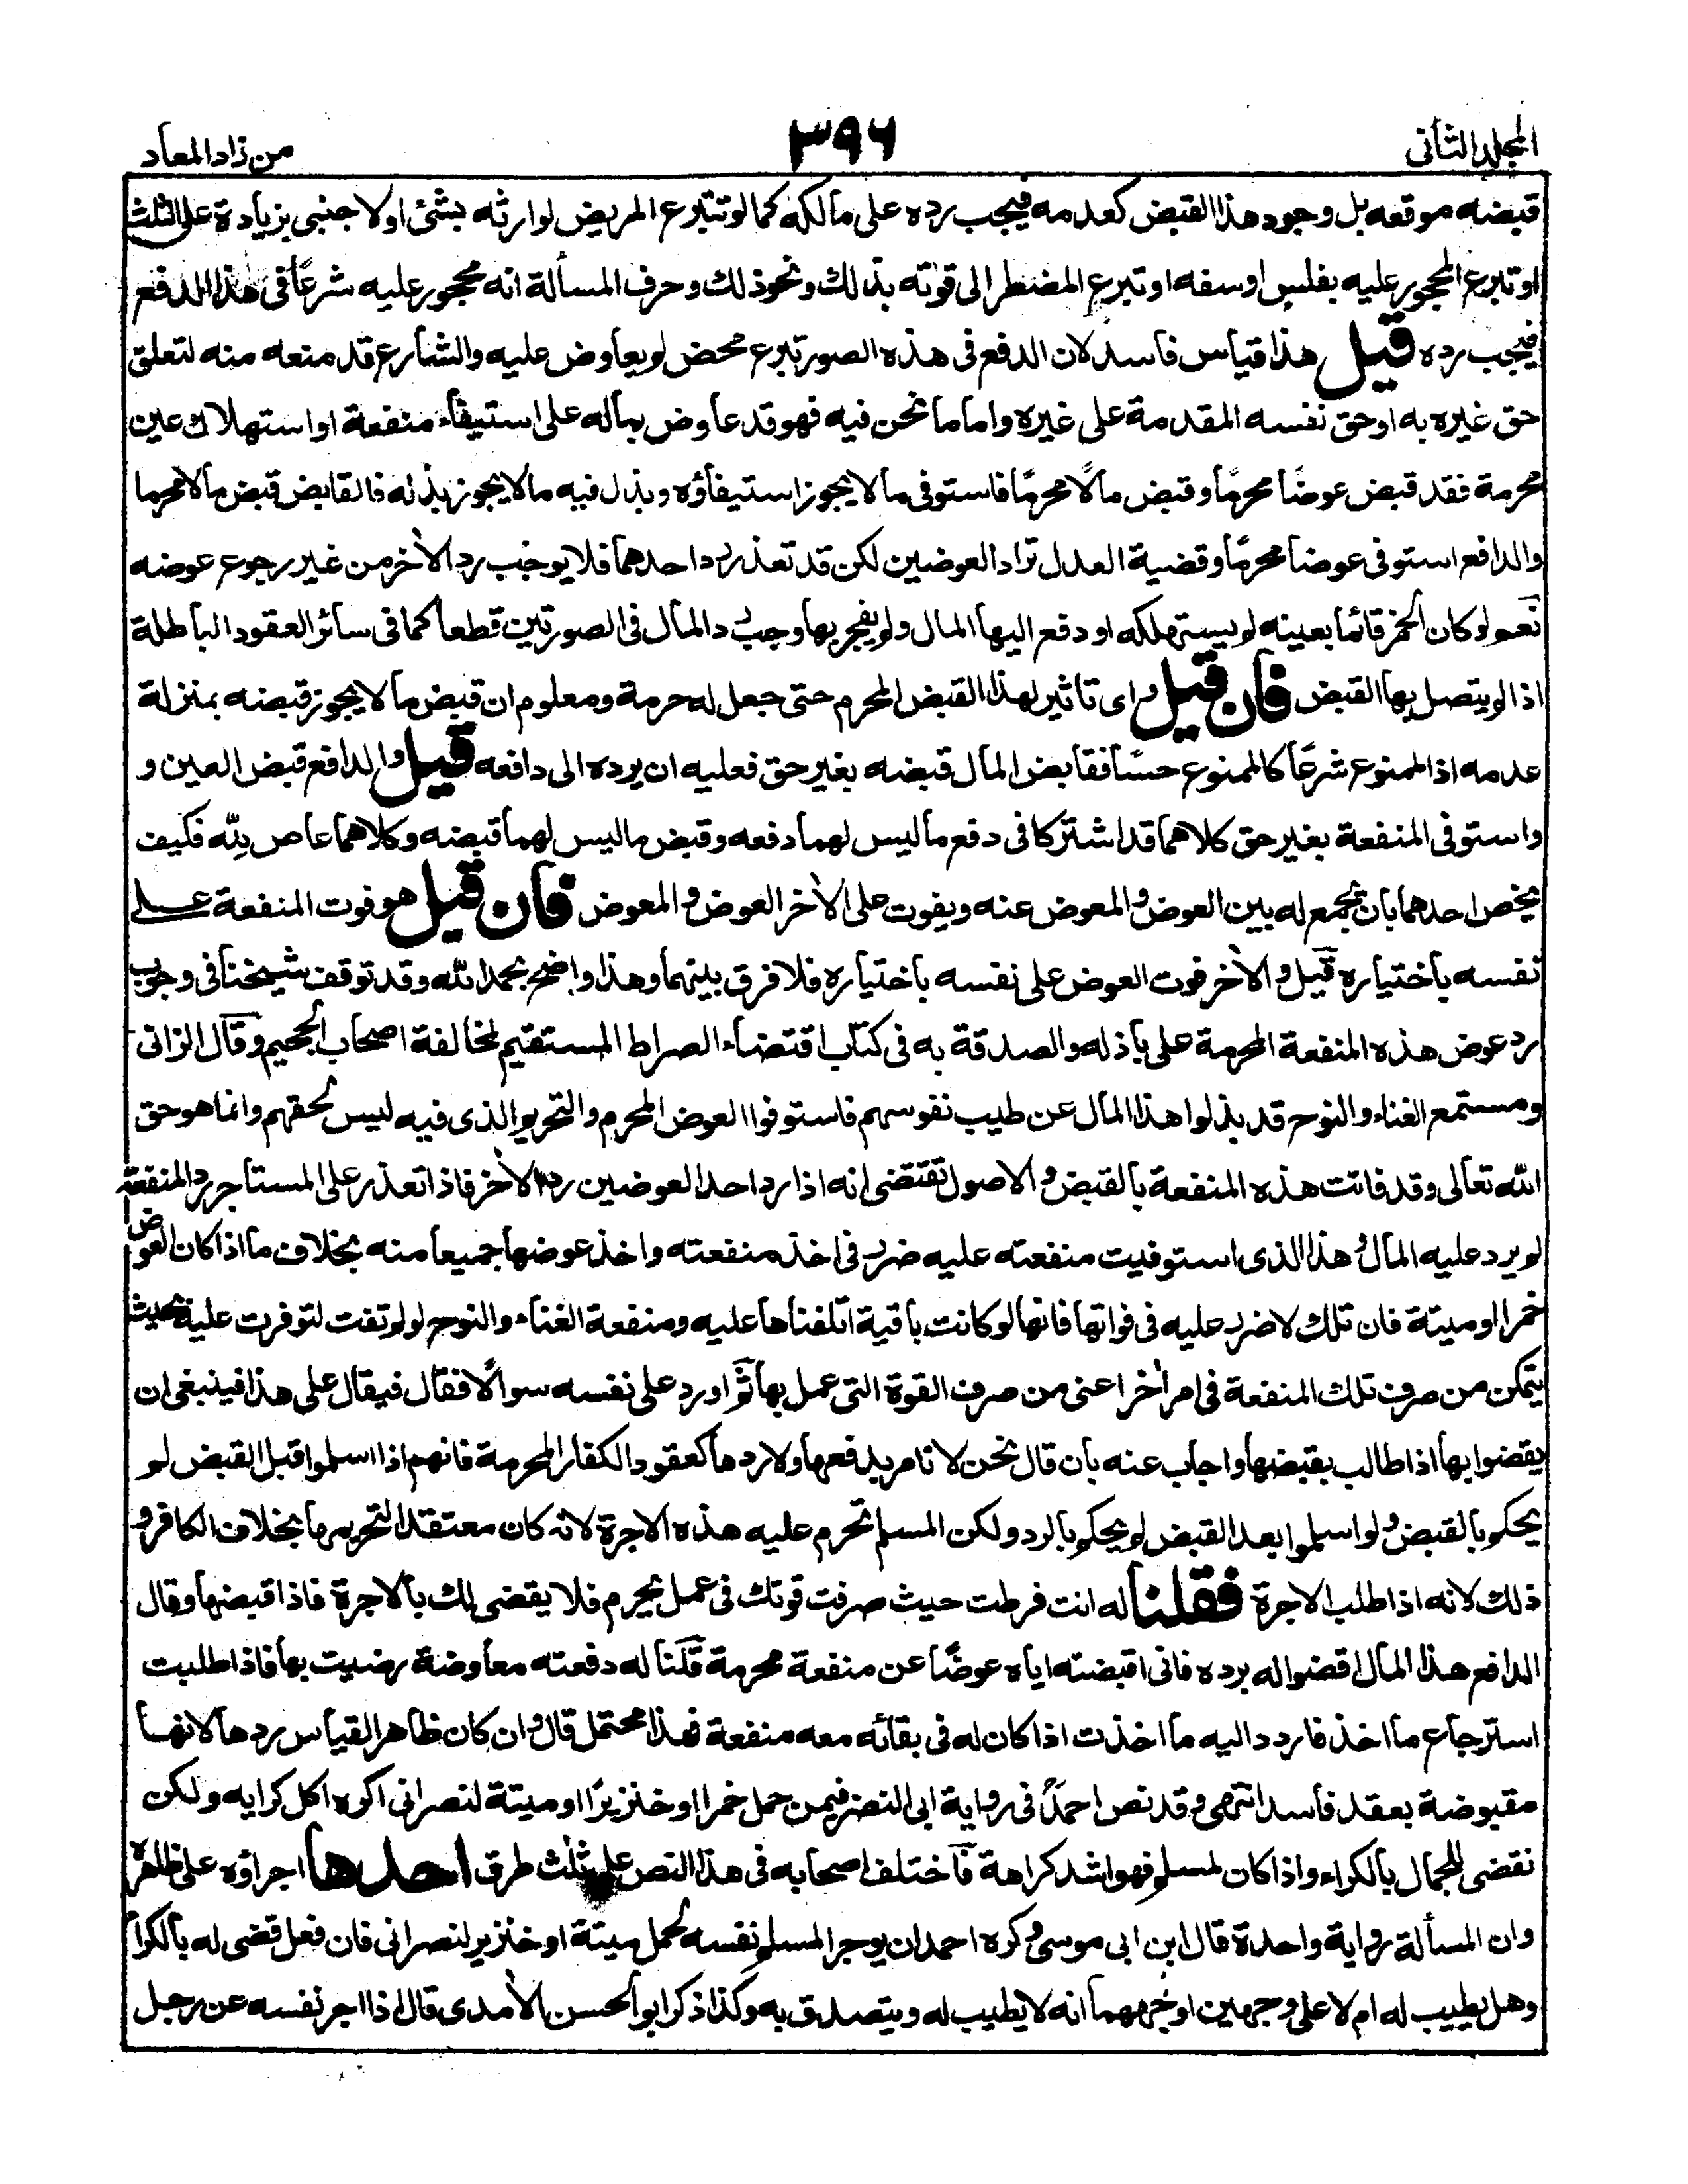 المجلد الثانى
٣٩٦
من زاد المعاد
قبضه موقعه بل وجود هذا القبض كعدمه فيجب رده على مالكه كما لو تبرع المريض لوارثه بشئ اولاجنبى بزيادة على الثلث
او تبرع المحجور عليه بفلس او سفه او تبرع المضطر الى قوته بذلك ونحو ذلك وحرف المسألة انه محجور عليه شرعًا فى هذا الدفع
فيجب رده قيل هذا قياس فاسد لان الدفع فى هذه الصور تبرع محض لم يعاوض عليه والشارع قد منعه منه لتعلق
حق غيره به او حق نفسه المقدمة على غيره واما ما نحن فيه فهو قد عاوض بماله على استيفاء منفعة او استهلاك عين
محرمة فقد قبض عوضًا محرمًا وقبض مالًا محرمًا فاستوفى ما لا يجوز استيفاؤه وبذل فيه ما لا يجوز بذله فالقابض قبض مالا محرما
والدافع استوفى عوضا محرمًا وقضية العدل تراد العوضين لكن قد تعذر رد احدهما فلا يوجب رد الآخر من غير رجوع عوضه
نعم لو كان الخمر قائما بعينه لم يستهلكه او دفع اليها المال ولم يفجر بها وجب رد المال فى الصورتين قطعا كما فى سائر العقود الباطلة
اذا لم يتصل بها القبض فان قيل واى تاثير لهذا القبض المحرم حتى جعل له حرمة ومعلوم ان قبض ما لا يجوز قبضه بمنزلة
عدمه اذ الممنوع شرعًا كالممنوع حسًا فقابض المال قبضه بغير حق فعليه ان يرده الى دافعه قيل والدافع قبض العين و
واستوفى المنفعة بغير حق كلاهما قد اشتركا فى دفع ما ليس لهما دفعه وقبض ما ليس لهما قبضه وكلاهما عاص لله فكيف
يخص احدهما بان يجمع له بين العوض والمعوض عنه ويفوت على الآخر العوض والمعوض فان قيل هو فوت المنفعة على
نفسه باختياره قيل والآخر فوت العوض على نفسه باختياره فلا فرق بينهما وهذا واضح بحمد الله وقد توقف شيخنا فى وجوب
رد عوض هذه المنفعة المحرمة على باذله والصدقة به فى كتاب اقتضاء الصراط المستقيم لمخالفة اصحاب الجحيم وقال الزانى
ومستمع الغناء والنوح قد بذلوا هذا المال عن طيب نفوسهم فاستوفوا العوض المحرم والتحريم الذى فيه ليس لحقهم وانما هو حق
الله تعالى وقد فاتت هذه المنفعة بالقبض والاصول تقتضى انه اذا رد احد العوضين رد الآخر فاذا تعذر على المستاجر رد المنفعة
لم يرد عليه المال وهذا الذى استوفيت منفعته عليه ضرر فى اخذ منفعته واخذ عوضها جميعا منه بخلاف ما اذا كان العوض
خمرا او ميتة فان تلك لا ضرر عليه فى فواتها فانها لو كانت باقية اتلفناها عليه ومنفعة الغناء والنوح لو لم تفت لتوفرت عليه بحيث
يتمكن من صرف تلك المنفعة فى امر آخر اعنى من صرف القوة التى عمل بها ثم اورد على نفسه سوالًا فقال فيقال على هذا فينبغى ان
يقضوا بها اذا طالب بقبضها واجاب عنه بان قال نحن لا نامر بدفعها ولا ردها كعقود الكفار المحرمة فانهم اذا اسلموا قبل القبض لم
يحكم بالقبض ولو اسلموا بعد القبض لم يحكم بالرد ولكن المسلم تحرم عليه هذه الاجرة لانه كان معتقدا لتحريمها بخلاف الكافر و
ذلك لانه اذا طلب الاجرة فقلنا له انت فرطت حيث صرفت قوتك فى عمل يحرم فلا يقضى لك بالاجرة فاذا قبضها وقال
الدافع هذا المال اقضوا له برده فانى اقبضته اياه عوضًا عن منفعة محرمة قلنا له دفعته معاوضة رضيت بها فاذا طلبت
استرجاع ما اخذ فاردد اليه ما اخذت اذا كان له فى بقائه معه منفعة فهذا محتمل قال وان كان ظاهر القياس ردها لانها
مقبوضة بعقد فاسد انتهى وقد نص احمد فى رواية ابى النضر فيمن حمل خمرا او خنزيرًا او ميتة لنصرانى اكره اكل كرايه ولكن
نقضى للجمال بالكراء واذا كان لمسلم فهو اشد كراهة فاختلف اصحابه فى هذا النص على ثلث طرق احدها اجراؤه على ظاهره
وان المسألة رواية واحدة قال ابن ابى موسى وكره احمد ان يوجر المسلم نفسه لحمل ميتة او خنزير لنصرانى فان فعل قضى له بالكرا
وهل يطيب له ام لا على وجهين اوجههما انه لا يطيب له ويتصدق به وكذا ذكر ابو الحسن الآمدى قال اذا اجر نفسه عن رجل